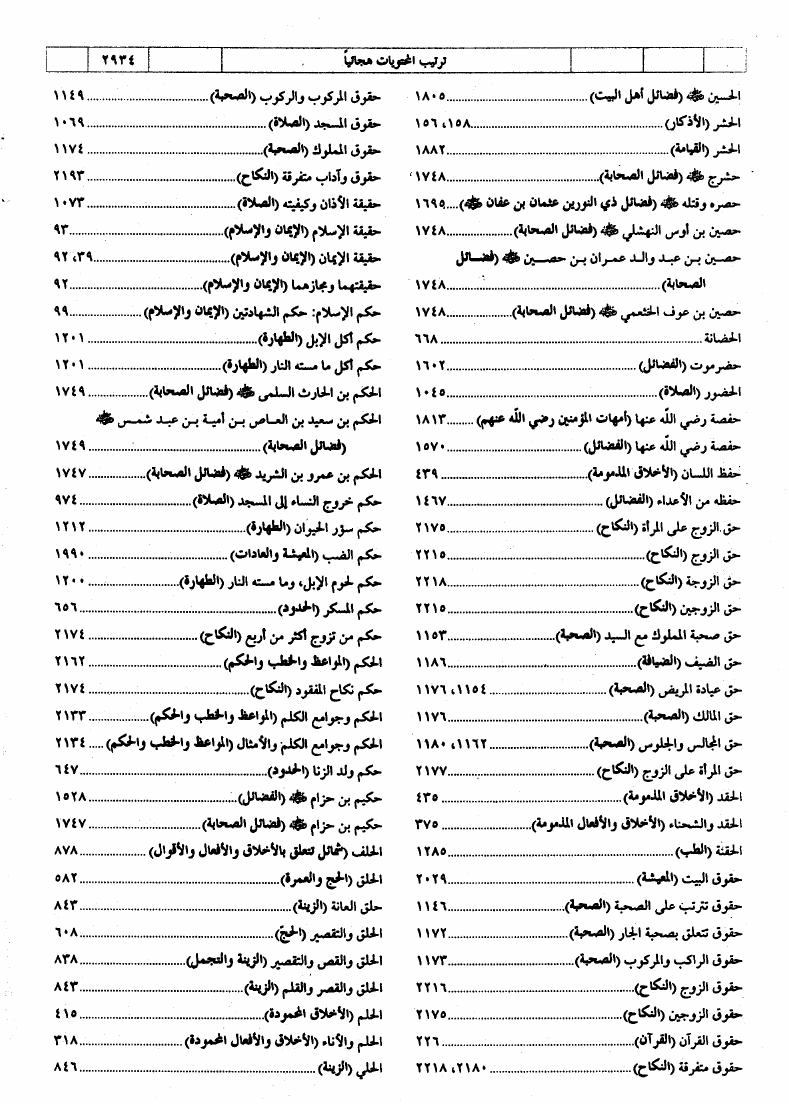 ترتيب المحتويات هجائياً ٢٩٣٤
الحسين ﷺ (فضائل أهل البيت) ١٨٠٥
الحشر (الأذكار) ١٥٨، ١٥٦
الحشر (القيامة) ١٨٨٢
حشرج ﷺ (فضائل الصحابة) ١٧٤٨
حصره وقتله ﷺ (فضائل ذي النورين عثمان بن عفان ﷺ) ١٦٩٥
حصين بن أوس النهشلي ﷺ (فضائل الصحابة) ١٧٤٨
حصين بن عبد والد عمران بن حصين ﷺ (فضائل
الصحابة) ١٧٤٨
حصين بن عوف الخثعمي ﷺ (فضائل الصحابة) ١٧٤٨
الحضانة ٦٦٨
حضرموت (الفضائل) ١٦٠٢
الحضور (الصلاة) ١٠٤٥
حفصة رضي الله عنها (أمهات المؤمنين رضي الله عنهم) ١٨١٣
حفصة رضي الله عنها (الفضائل) ١٥٧٠
حفظ اللسان (الأخلاق المذمومة) ٤٣٩
حفظه من الأعداء (الفضائل) ١٤٦٧
حق الزوج على المرأة (النكاح) ٢١٧٥
حق الزوج (النكاح) ٢٢١٥
حق الزوجة (النكاح) ٢٢١٨
حق الزوجين (النكاح) ٢٢١٥
حق صحبة المملوك مع السيد (الصحبة) ١١٥٣
حق الضيف (الضيافة) ١١٨٦
حق عيادة المريض (الصحبة) ١١٥٤، ١١٧٦
حق المالك (الصحبة) ١١٧٦
حق المجالس والجلوس (الصحبة) ١١٦٢، ١١٨٠
حق المرأة على الزوج (النكاح) ٢١٧٧
الحقد (الأخلاق المذمومة) ٤٣٥
الحقد والشحناء (الأخلاق والأفعال المذمومة) ٣٧٥
الحقنة (الطب) ١٢٨٥
حقوق البيت (المعيشة) ٢٠٢٩
حقوق تترتب على الصحبة (الصحبة) ١١٤٦
حقوق تتعلق بصحبة الجار (الصحبة) ١١٧٢
حقوق الراكب والمركوب (الصحبة) ١١٧٣
حقوق الزوج (النكاح) ٢٢١٦
حقوق الزوجين (النكاح) ٢١٧٥
حقوق القرآن (القرآن) ٢٢٦
حقوق متفرقة (النكاح) ٢١٨٠، ٢٢١٨
حقوق المركوب والركوب (الصحبة) ١١٤٩
حقوق المسجد (الصلاة) ١٠٦٩
حقوق المملوك (الصحبة) ١١٧٤
حقوق وآداب متفرقة (النكاح) ٢١٩٣
حقيقة الأذان وكيفيته (الصلاة) ١٠٧٣
حقيقة الإسلام (الإيمان والإسلام) ٩٣
حقيقة الإيمان (الإيمان والإسلام) ٣٩، ٩٢
حقيقتهما ومجازهما (الإيمان والإسلام) ٩٢
حكم الإسلام: حكم الشهادتين (الإيمان والإسلام) ٩٩
حكم أكل الإبل (الطهارة) ١٢٠١
حكم أكل ما مسته النار (الطهارة) ١٢٠١
الحكم بن الحارث السلمي ﷺ (فضائل الصحابة) ١٧٤٩
الحكم بن سعيد بن العاص بن أمية بن عبد شمس ﷺ
(فضائل الصحابة) ١٧٤٩
الحكم بن عمرو بن الشريد ﷺ (فضائل الصحابة) ١٧٤٧
حكم خروج النساء إلى المسجد (الصلاة) ٩٧٤
حكم سؤر الحيوان (الطهارة) ١٢١٢
حكم الضب (المعيشة والعادات) ١٩٩٠
حكم لحوم الإبل، وما مسته النار (الطهارة) ١٢٠٠
حكم المسكر (الحدود) ٦٥٦
حكم من تزوج أكثر من أربع (النكاح) ٢١٧٤
الحكم (المواعظ والخطب والحكم) ٢١٦٢
حكم نكاح المفقود (النكاح) ٢١٧٤
الحكم وجوامع الكلم (المواعظ والخطب والحكم) ٢١٣٣
الحكم وجوامع الكلم والأمثال (المواعظ والخطب والحكم) ٢١٣٤
حكم ولد الزنا (الحدود) ٦٤٧
حكيم بن حزام ﷺ (الفضائل) ١٥٢٨
حكيم بن حزام ﷺ (فضائل الصحابة) ١٧٤٧
الحلف (شمائل تتعلق بالأخلاق والأفعال والأقوال) ٨٧٨
الحلق (الحج والعمرة) ٥٨٢
حلق العانة (الزينة) ٨٤٣
الحلق والتقصير (الحج) ٦٠٨
الحلق والقص والتقصير (الزينة والتجمل) ٨٣٨
الحلق والقصر والقلم (الزينة) ٨٤٣
الحلم (الأخلاق المحمودة) ٤١٥
الحلم والأناء (الأخلاق والأفعال المحمودة) ٣١٨
الحلي (الزينة) ٨٤٦